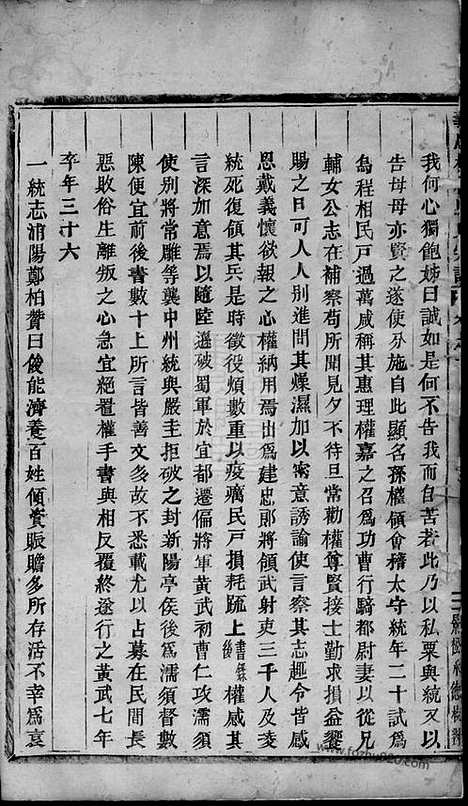 我何心獨飽姊曰誠如是何不告我而自苦若此乃以私粟與統又以
告母母亦賢之遂使分施自此顯名孫權領會稽太守統年二十試爲
烏程相民戶過萬咸稱其惠理權嘉之召爲功曹行騎都尉妻以從兄
輔女公志在補察苟所聞見夕不待旦常勸權尊賢接士勤求損益饗
賜之日可人人別進問其燥濕加以密意誘諭使言察其志趣令皆感
恩戴義懷欲報之心權納用焉出爲建忠郎將領武射吏三千人及凌
統死復領其兵是時徵役煩數重以疫癘民戶損耗䟽上書錄後權感其
言深加意焉以隨陸遜破蜀軍於宜都遷偏將軍黃武初曹仁攻濡須
使別將常雕等襲中州統與嚴圭拒破之封新陽亭侯後爲濡須督數
陳便宜前後書數十上所言皆善文多故不悉載尤以占募在民間長
惡敗俗生離叛之心急宜絕置權手書與相反覆終遂行之黃武七年
卒年三十六
一統志浦陽鄭柏贊曰俊能濟養百姓傾資賑贍多所存活不幸爲袁
www.fozhu920.com